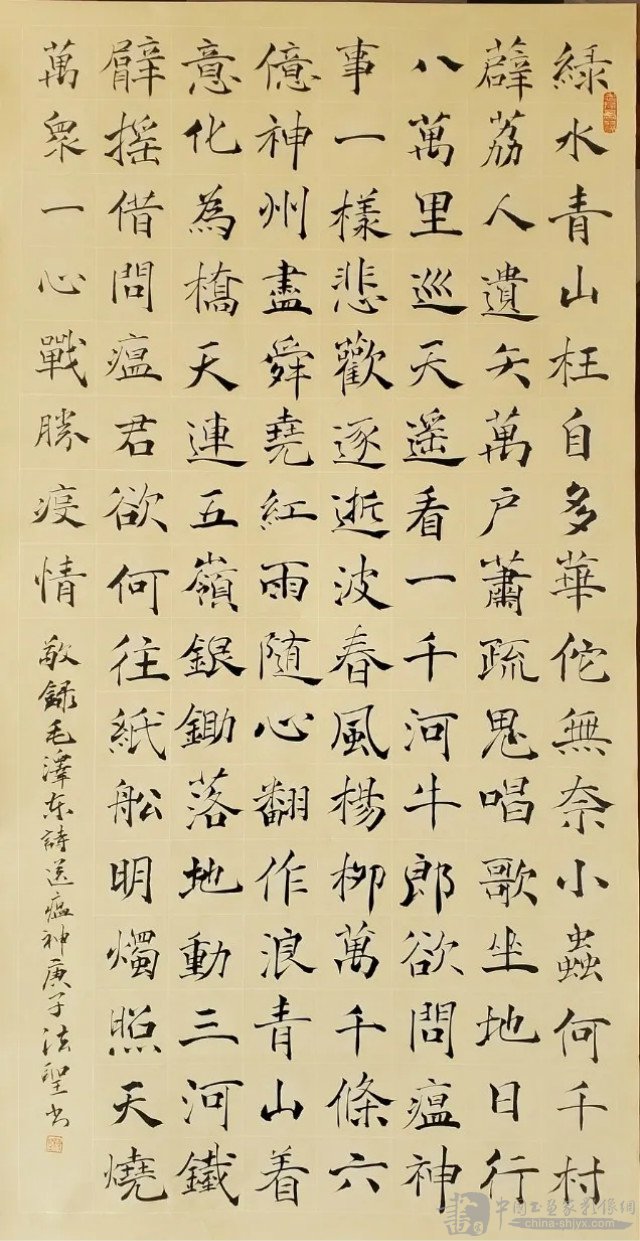 綠水青山枉自多華佗無奈小蟲何千村
薜荔人遺矢萬户蕭疏鬼唱歌坐地日行
八萬里巡天遥看一千河牛郎欲問瘟神
事一樣悲歡逐逝波春風楊柳萬千條六
億神州盡舜堯紅雨随心翻作浪青山着
意化為橋天連五嶺銀鋤落地動三河鐵
臂摇借問瘟君欲何往紙船明燭照天燒
萬衆一心戰勝疫情 敬録毛澤东詩送瘟神庚子法聖书
中国书画家影像網
china-shjyx.com